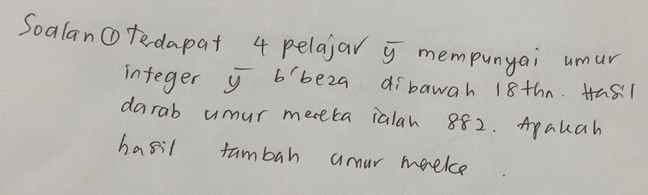 Soalan ① Tedapat 4 pelajar ȳ mempunyai umur
integer ȳ b'beza dibawah 18thn. Hasil
darab umur mereka ialah 882. Apakah
hasil tambah umur mereke.